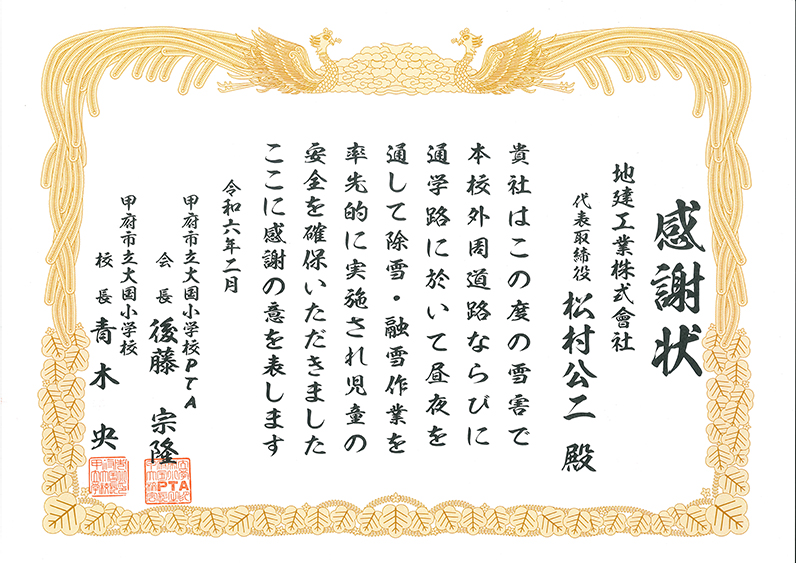 感謝状
地建工業株式會社
代表取締役 松村公二 殿
貴社はこの度の雪害で
本校外周道路ならびに
通学路に於いて昼夜を
通して除雪・融雪作業を
率先的に実施され児童の
安全を確保いただきました
ここに感謝の意を表します
令和六年二月
甲府市立大国小学校PTA
会長 後藤 宗隆
甲府市立大国小学校
校長 青木 央
PTA